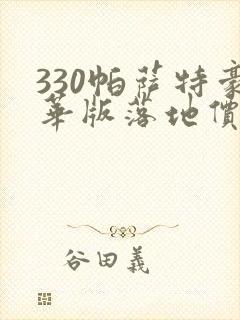 330帕萨特豪
华版落地價
谷田義